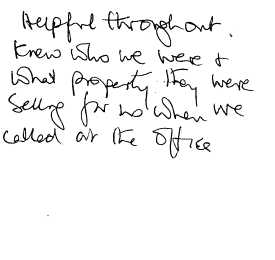 Helpful throughout.
Knew who we were &
what property they were
selling for us when we
called at the office